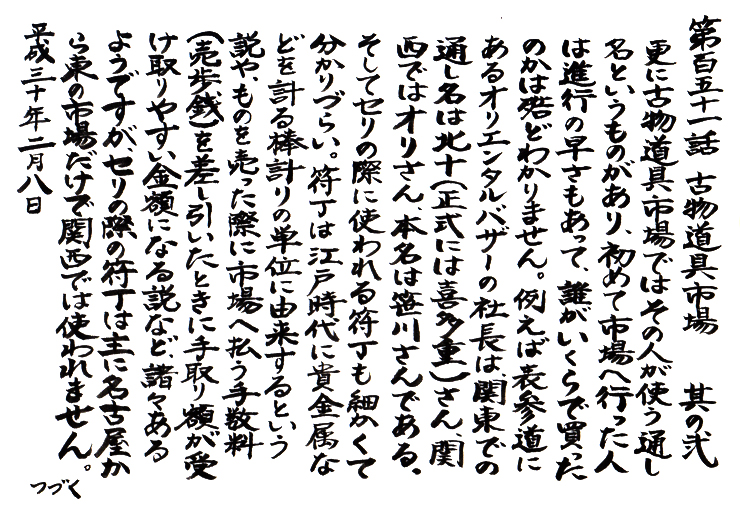 第百五十一話　古物道具市場　　其の弐
更に古物道具市場ではその人が使う通し
名というものがあり、初めて市場へ行った人
は進行の早さもあって、誰がいくらで買った
のかは殆どわかりません。例えば表参道に
あるオリエンタルバザーの社長は、関東での
通し名は北十(正式には喜多重)さん、関
西ではオリさん、本名は笹川さんである。
そしてセリの際に使われる符丁も細かくて
分かりづらい。符丁は江戸時代に貴金属な
どを計る棒計りの単位に由来するという
説や、ものを売った際に市場へ払う手数料
(売歩銭)を差し引いたときに手取り額が受
け取りやすい金額になる説など、諸々ある
ようですが、セリの際の符丁は主に名古屋か
ら東の市場だけで関西では使われません。
平成三十年二月八日
つづく